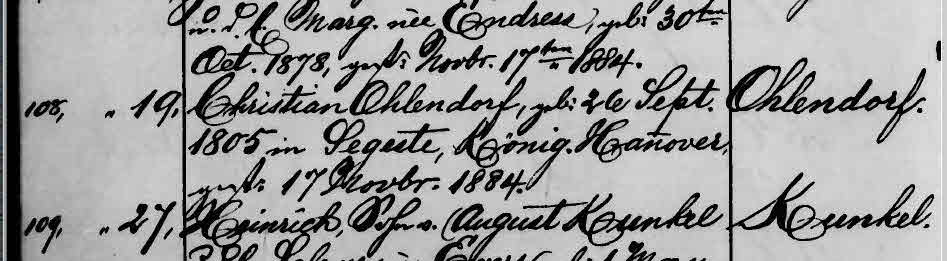 u. d. E. Marg. née Endress, geb: 30ten
Oct. 1878, gest: Novbr. 17ten 1884.
108, " 19, Christian Ohlendorf, geb: 26 Sept. Ohlendorf.
1805 in Segeste, König. Hañover,
gest: 17 Novbr. 1884.
109, " 27, Heinrich, Sohn v. August Kunkel Kunkel.